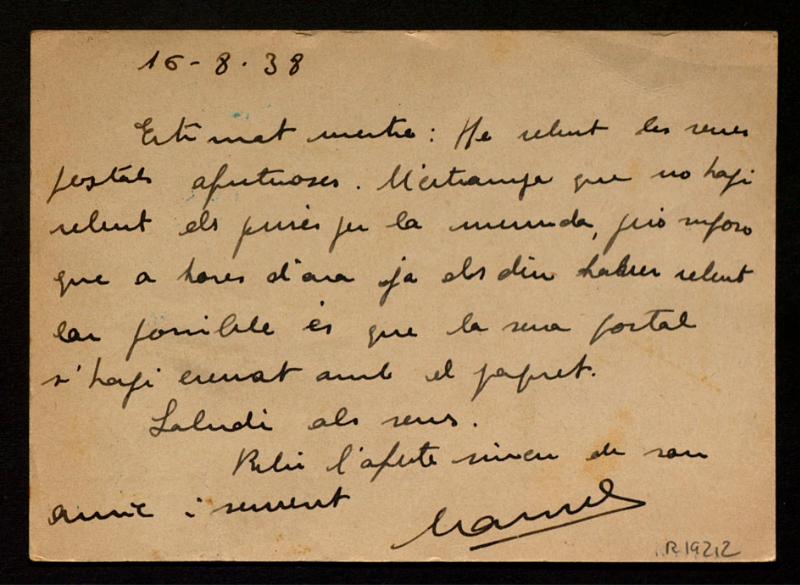 16-8-38
Estimat mestre: He rebut les seves
postals afectuoses. M'estranya que no hagi
rebut els per la memòria, però suposo
que a hores d'ara ja els deu haber rebut
possible és que la seva postal
s'hagi creuat amb el paquet.
Saludi als seus.
Rebi l'afecte sincer de son
amic i servent
Manuel
R.19212